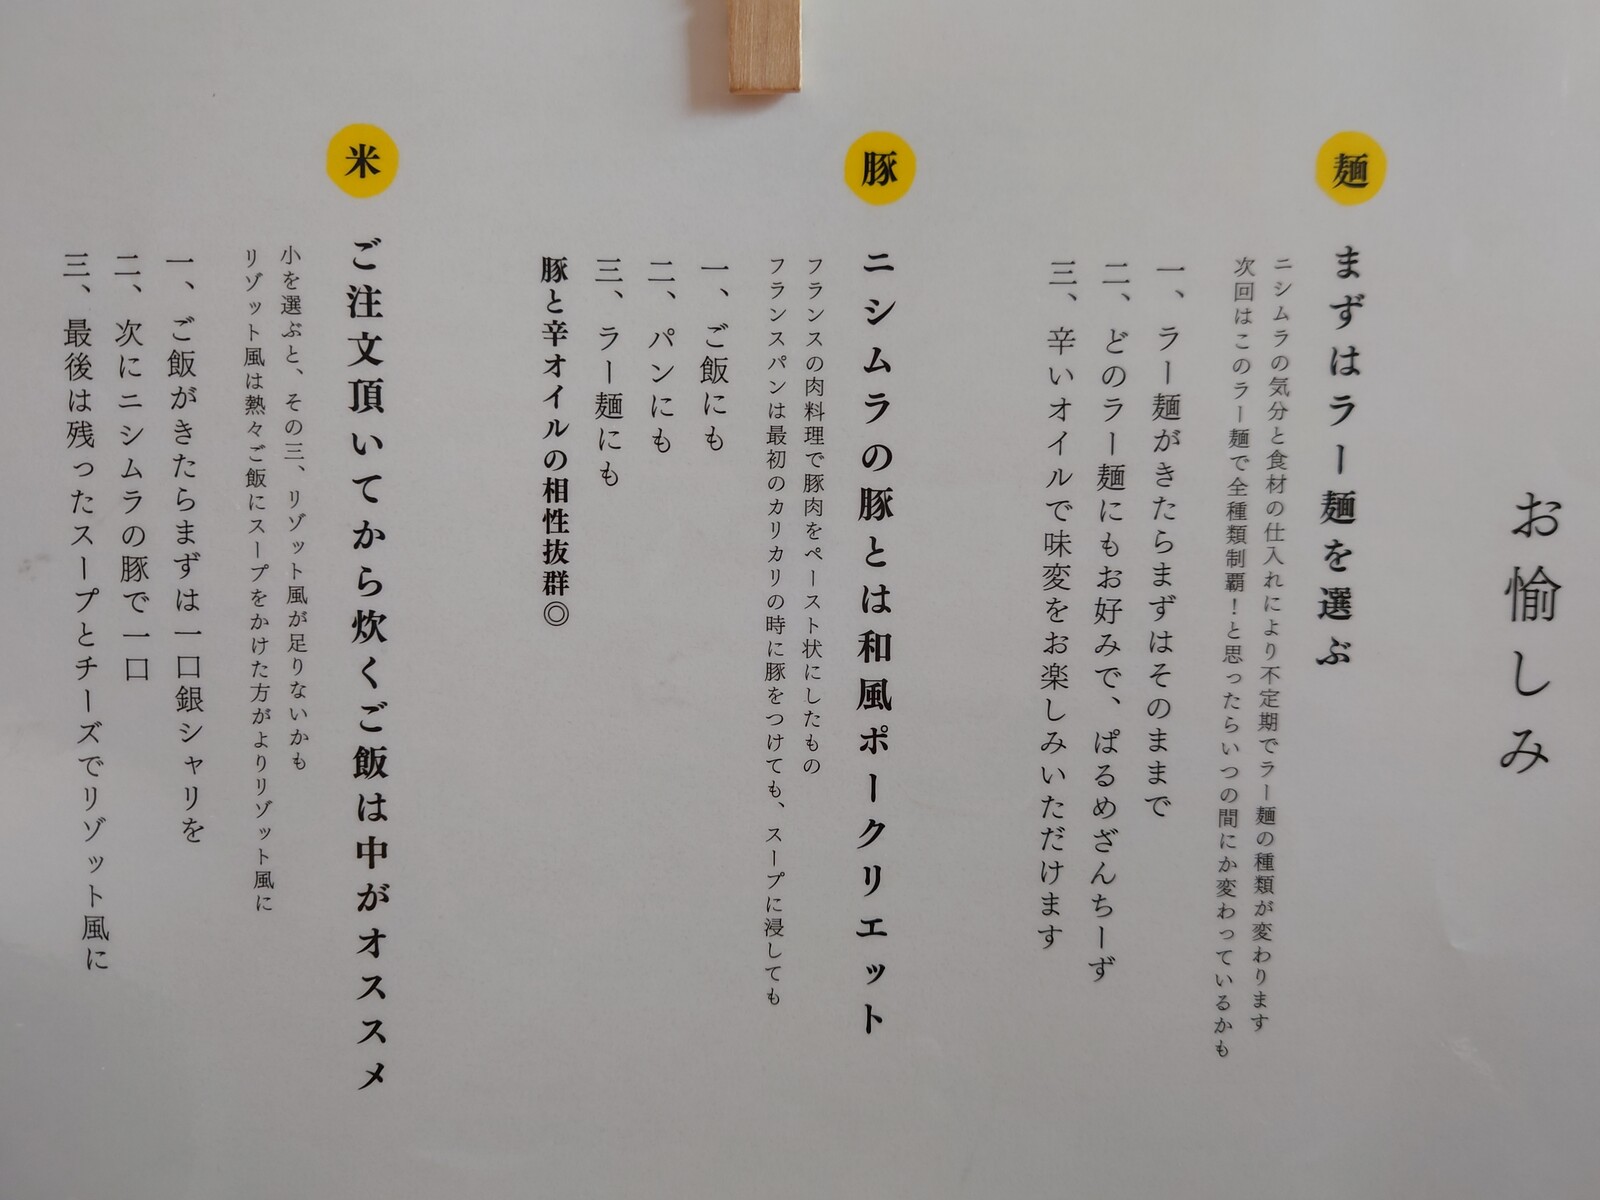 お愉しみ
麺
まずはラー麺を選ぶ
ニシムラの気分と食材の仕入れにより不定期でラー麺の種類が変わります
次回はこのラー麺で全種類制覇！と思ったらいつの間にか変わっているかも
一、ラー麺がきたらまずはそのままで
二、どのラー麺にもお好みで、ぱるめざんちーず
三、辛いオイルで味変をお楽しみいただけます
豚
ニシムラの豚とは和風ポークリエット
フランスの肉料理で豚肉をペースト状にしたもの
フランスパンは最初のカリカリの時に豚をつけても、スープに浸しても
一、ご飯にも
二、パンにも
三、ラー麺にも
豚と辛オイルの相性抜群◎
米
ご注文頂いてから炊くご飯は中がオススメ
小を選ぶと、その三、リゾット風が足りないかも
リゾット風は熱々ご飯にスープをかけた方がよりリゾット風に
一、ご飯がきたらまずは一口銀シャリを
二、次にニシムラの豚で一口
三、最後は残ったスープとチーズでリゾット風に